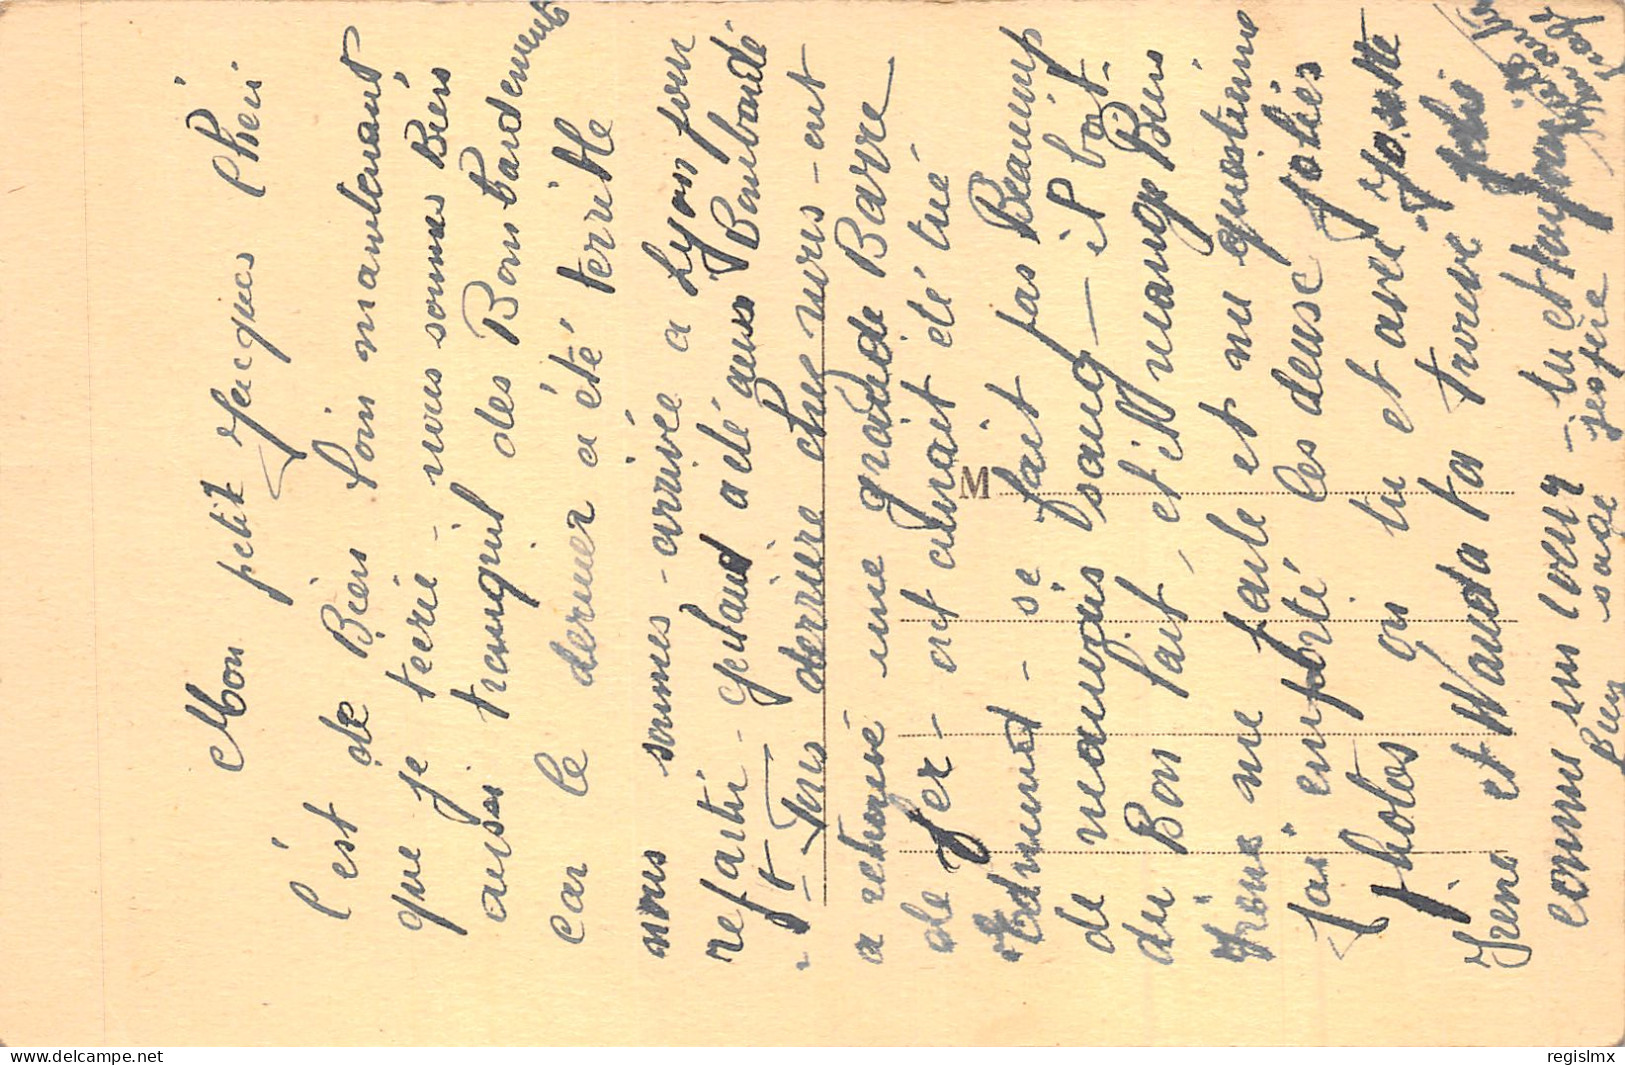 Mon petit Jacques Chéri
C'est de Bien loin maintenant
que je técrié - nous sommes Bién
aussi tranquil des Bombardements
car le dernier a été terrible
nous sommes arrivé a Lyon pour
repartir - quand a été aussi Bombardé
Tous derriere chez nous - ont
a retrouvé une grande Barre
de fer - ont aurait été tué
Edmund - se fait pas Beaucoup
de mauvais sang - il bat
du Bon lait, et ill mange Bien
Irène me parle et me questionne
jai emporté les deux joliés
photos ou tu et avec Yanette
Irène et Wanda ta trouve
comme un coeur - tu et
jespère
bien sage
M
regislmx